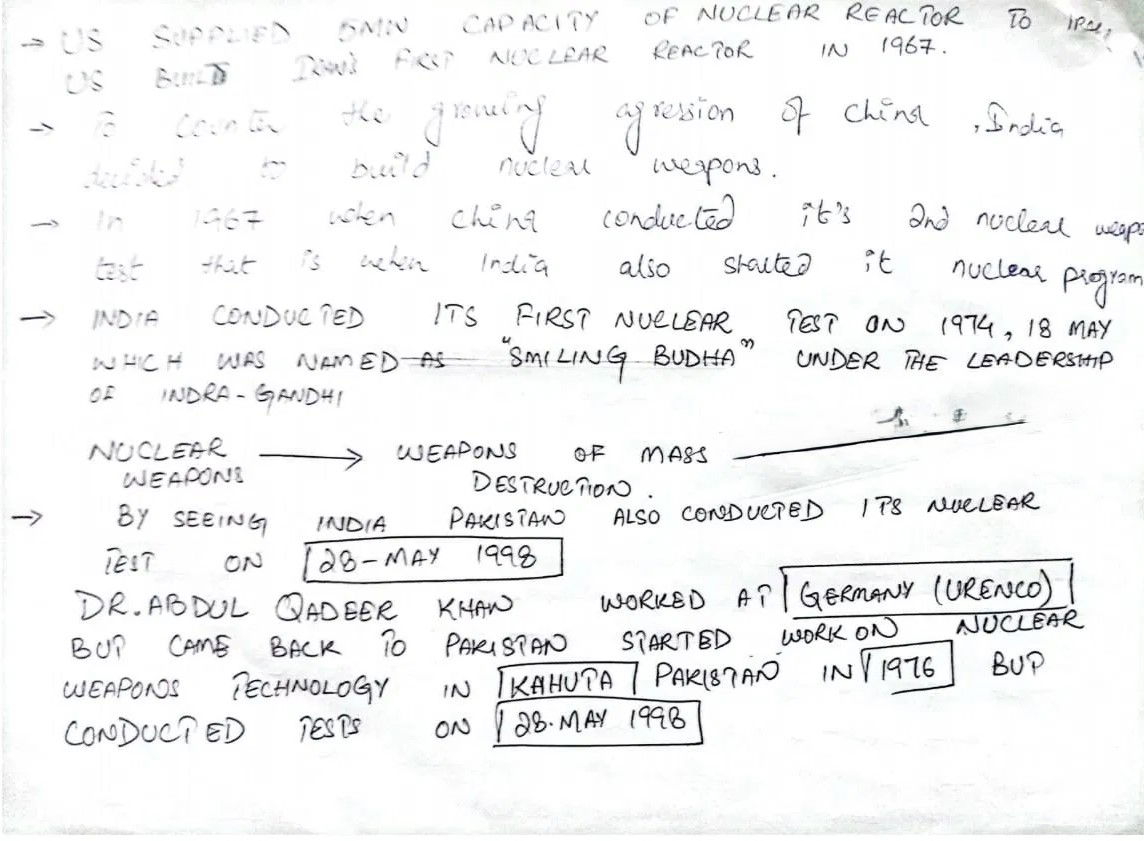 → US SUPPLIED 5MW CAPACITY OF NUCLEAR REACTOR TO
US BUILD IRAN'S FIRST NUCLEAR REACTOR IN 1967.
→ To counter the growing agression of China, India
decided to build nuclear weapons.
→ In 1967 when China conducted it's 2nd nuclear weapo
test that is when India also started it nuclear program
→ INDIA CONDUCTED ITS FIRST NUCLEAR TEST ON 1974, 18 MAY
WHICH WAS NAMED AS "SMILING BUDHA" UNDER THE LEADERSHIP
OF INDRA-GANDHI
NUCLEAR WEAPONS → WEAPONS OF MASS
DESTRUCTION.
→ BY SEEING INDIA PAKISTAN ALSO CONDUCTED ITS NUCLEAR
TEST ON 28-MAY 1998
DR. ABDUL QADEER KHAN WORKED AT GERMANY (URENCO)
BUT CAME BACK TO PAKISTAN STARTED WORK ON NUCLEAR
WEAPONS TECHNOLOGY IN KAHUTA PAKISTAN IN 1976 BUT
CONDUCTED TESTS ON 28.MAY 1998